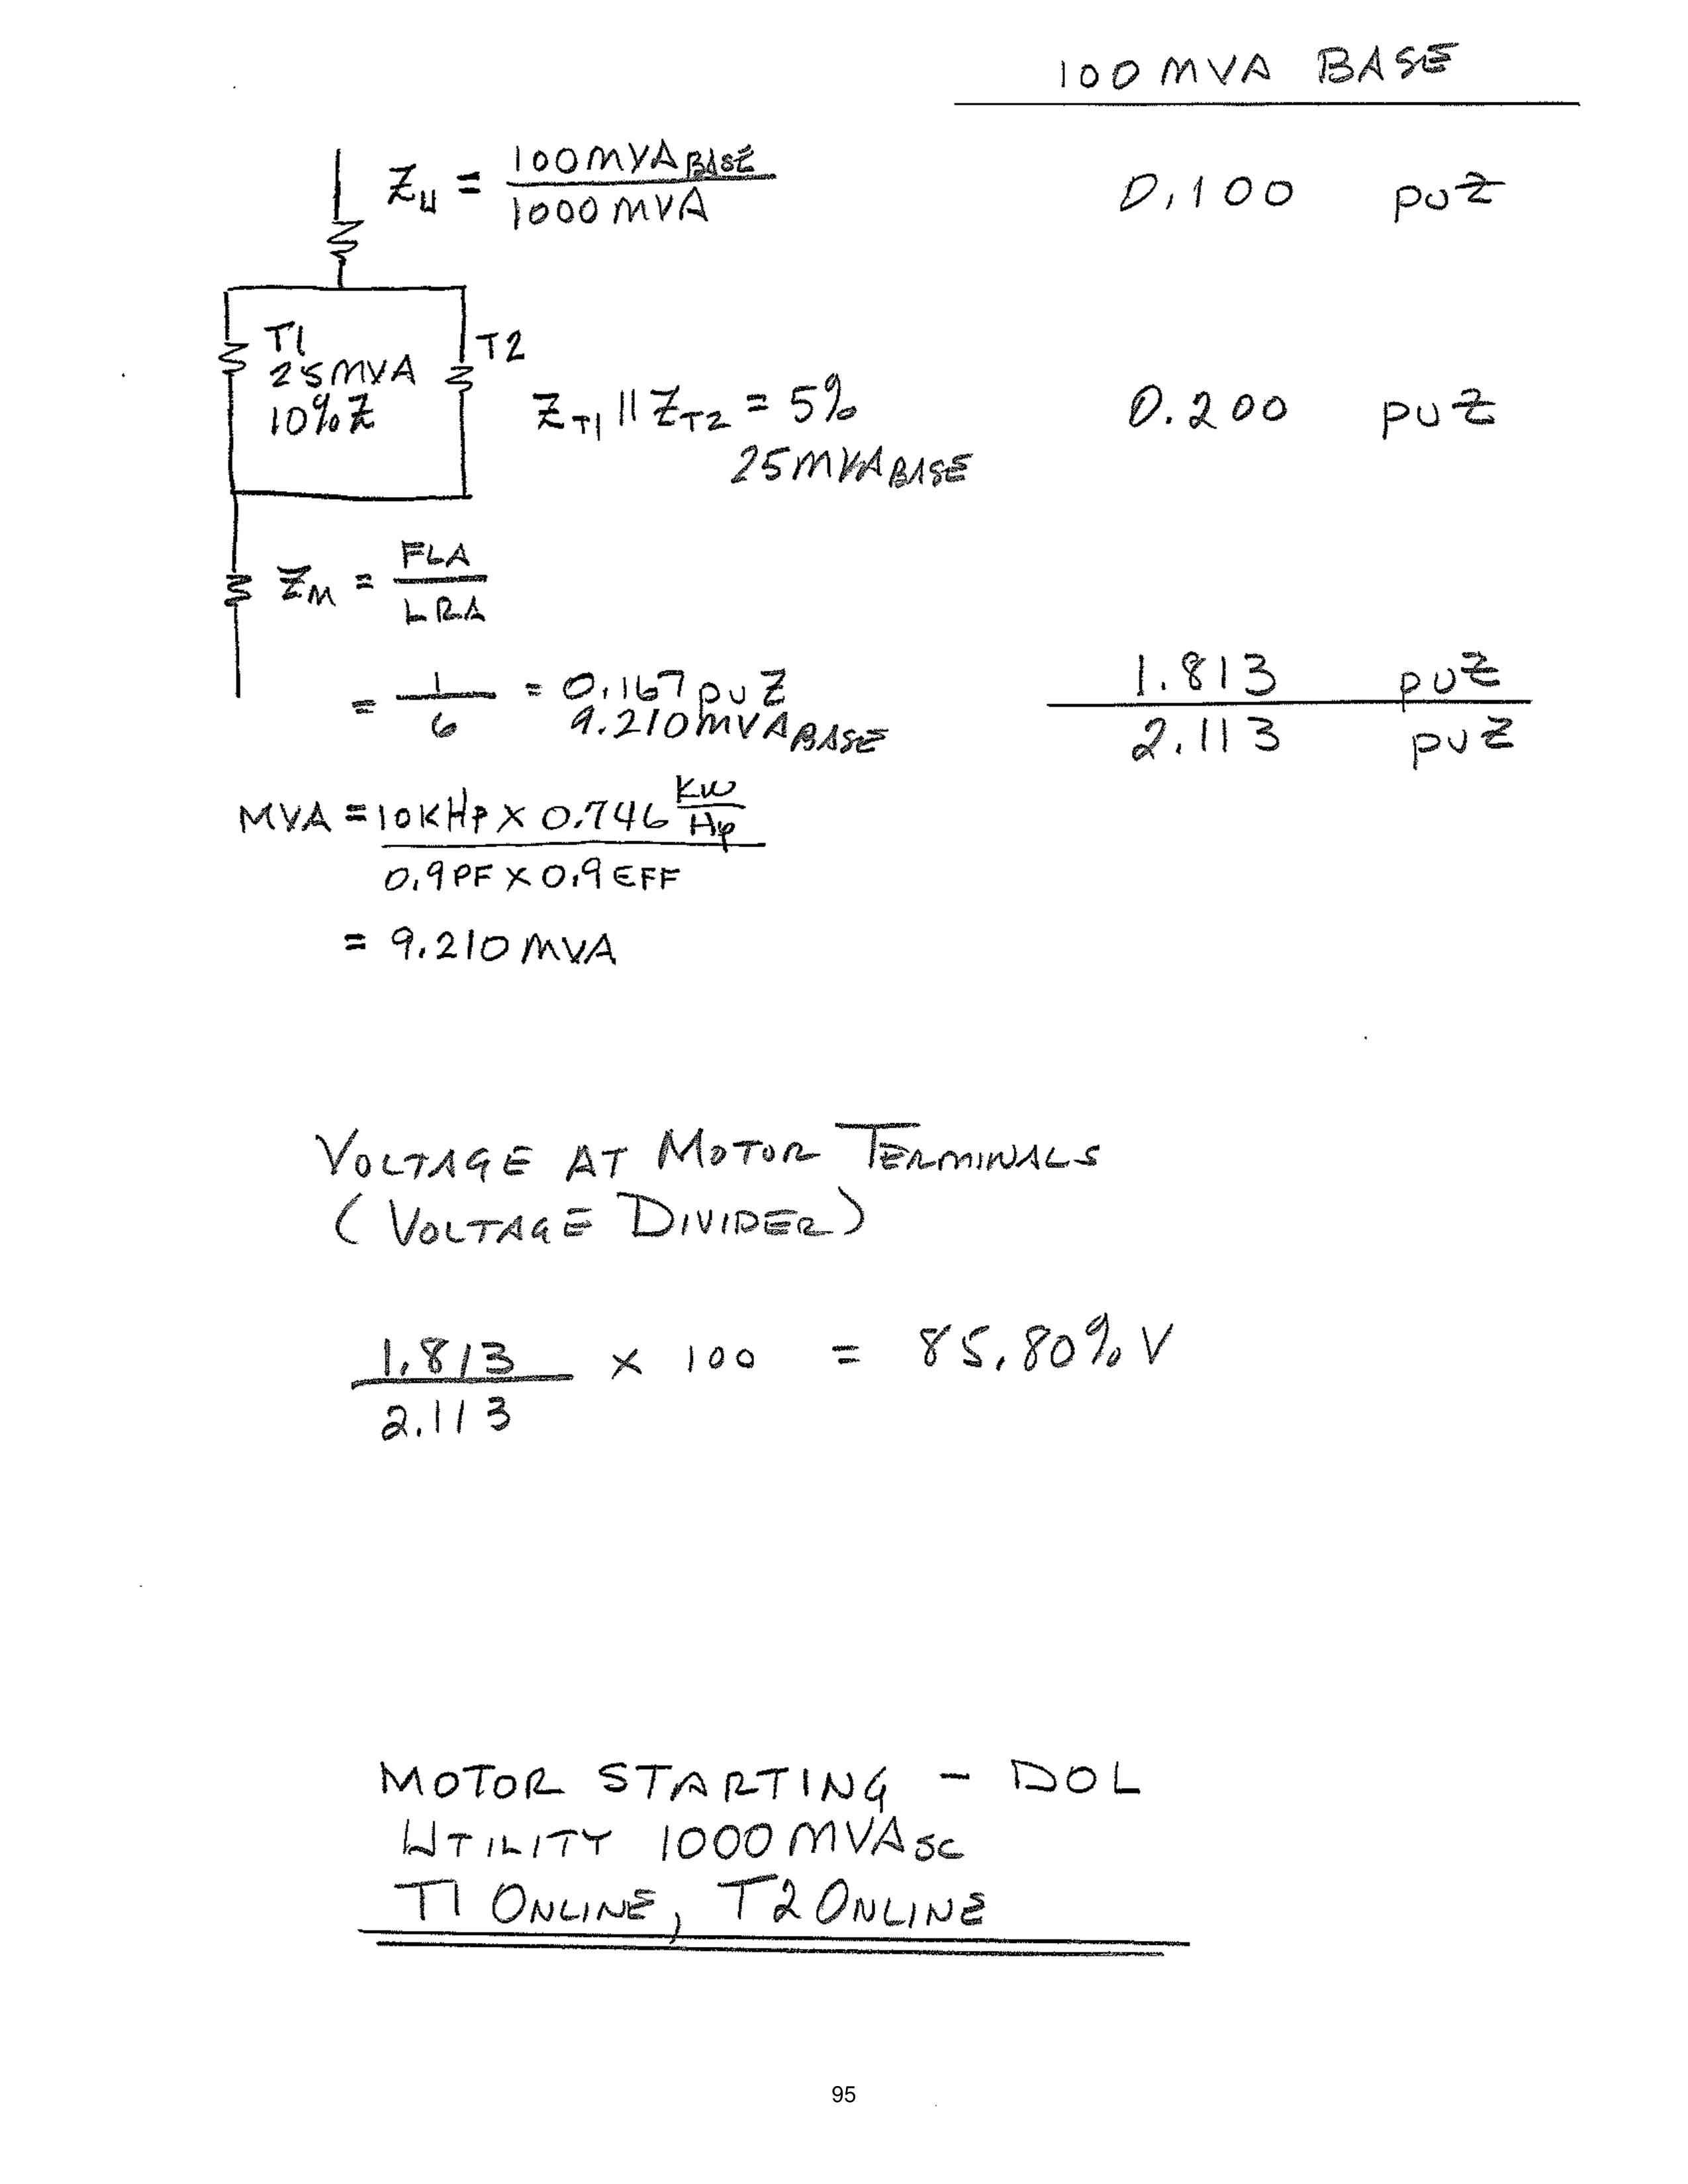 100 MVA BASE
Zu = 100 MVA BASE / 1000 MVA 0.100 puZ
T1 T2
25 MVA
10% Z ZT1 || ZT2 = 5% 0.200 puZ
25 MVA BASE
ZM = FLA / LRA
= 1/6 = 0.167 pu Z 1.813 puZ
9.210 MVA BASE 2.113 puZ
MVA = 10 KHP x 0.746 KW/HP
0.9 PF x 0.9 EFF
= 9.210 MVA
VOLTAGE AT MOTOR TERMINALS
(VOLTAGE DIVIDER)
1.813 / 2.113 x 100 = 85.80% V
MOTOR STARTING - DOL
UTILITY 1000 MVA SC
T1 ONLINE, T2 ONLINE
95